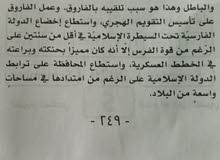 والباطل وهذا هو سبب تلقيبه بالفاروق، وعمل الفاروق
على تأسيس التقويم الهجري، واستطاع إخضاع الدولة
الفارسيّة تحت السيطرة الإسلاميّة في أقل من سنتين على
الرّغم من قوة الفرس إلّا أنه كان مميزاً بحنكته وبراعته
في الخطط العسكرية، واستطاع المحافظة على ترابط
الدولة الإسلامية على الرغم من امتدادها في مساحات
واسعة من البلاد.
- ٢٤٩ -